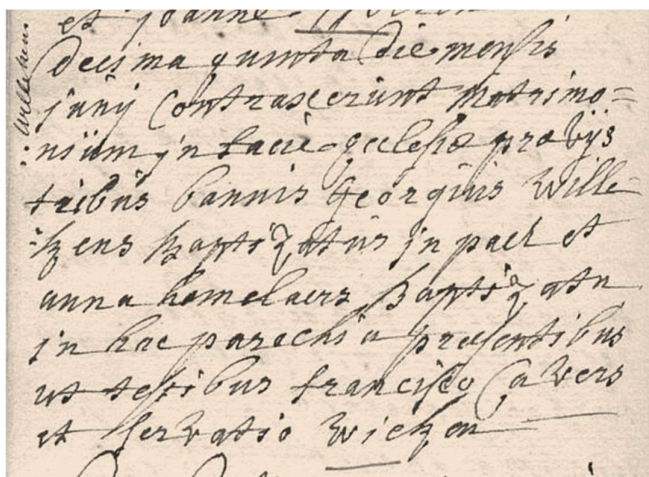 et joanne
decima quinta die mensis
junij Contraxerunt matrimo=
nium jn facie ecclesiæ prævijs
tribus bannis Georgius Wille
:kens baptizatus jn pael et
anna hamelaers baptizata
jn hac parochia presentibus
ut testibus francisco Cavers
et servatio wicken